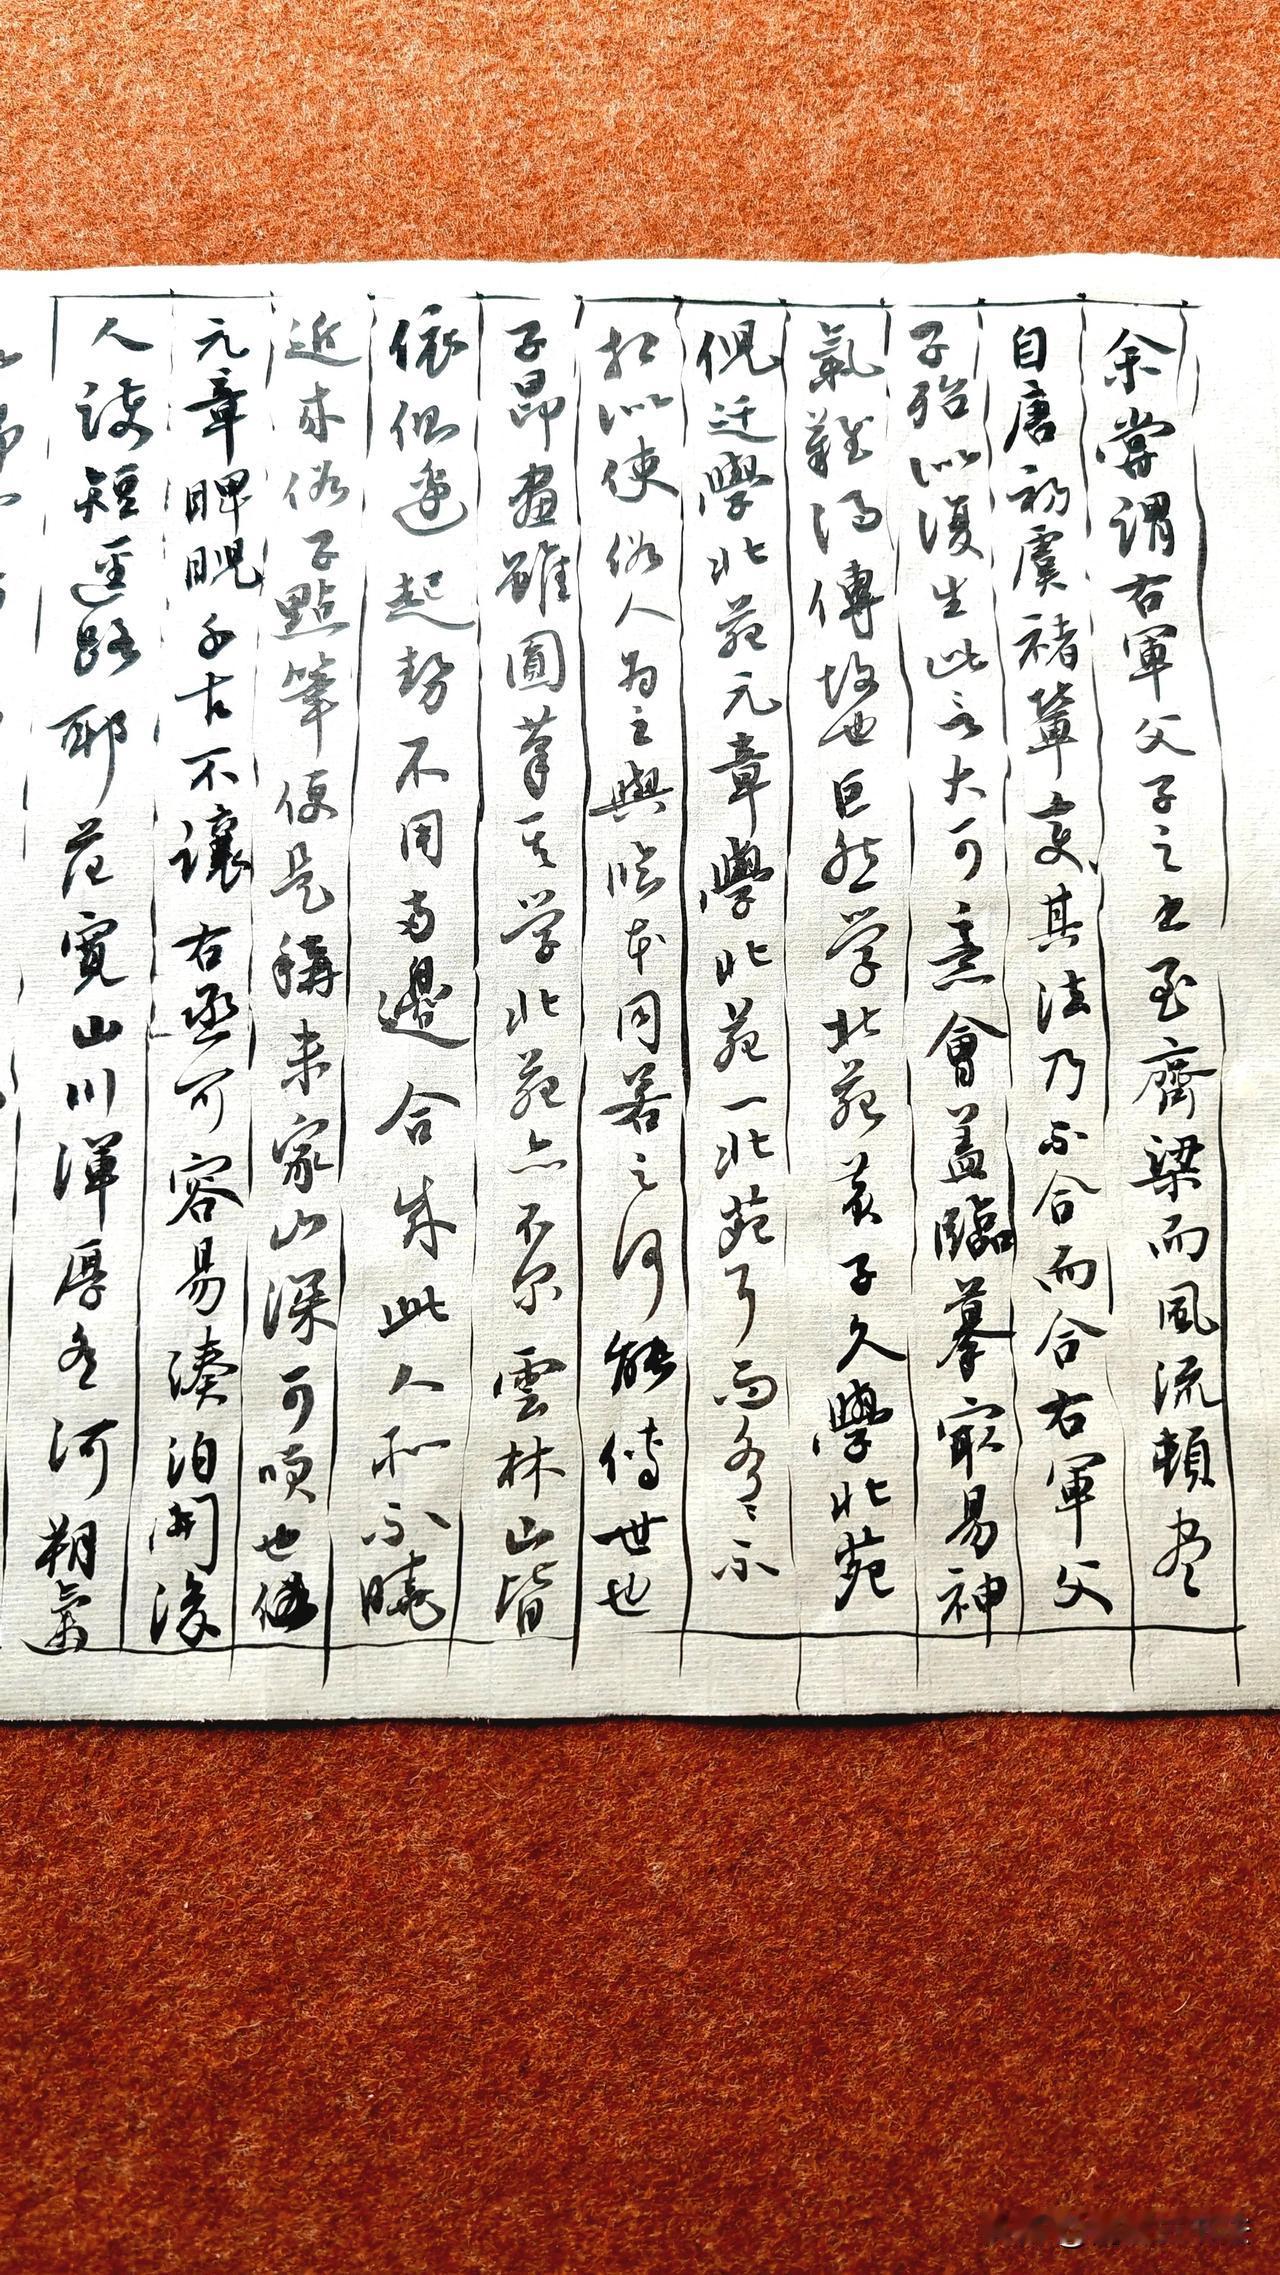 余嘗謂右軍父子之书至齊梁而風流頓尽
自唐初虞褚輩变其法乃不合而合右軍父
子殆似復生此言大可意會蓋臨摹最易神
氣難得傳故也巨然学北苑黄子久學北苑
倪迂學北苑元章學北苑一北苑耳而各〻不
相似使俗人為之與临本同若之何能傳世也
子昂畫雖圓筆其学北苑亦不尔雲林山皆
依側邊起勢不用两邊合成此人所不曉
近来俗子點筆便是稱米家山深可笑也
元章睥睨千古不讓右丞可容易湊泊開後
人護短逕路耶范寬山川渾厚有河朔氣